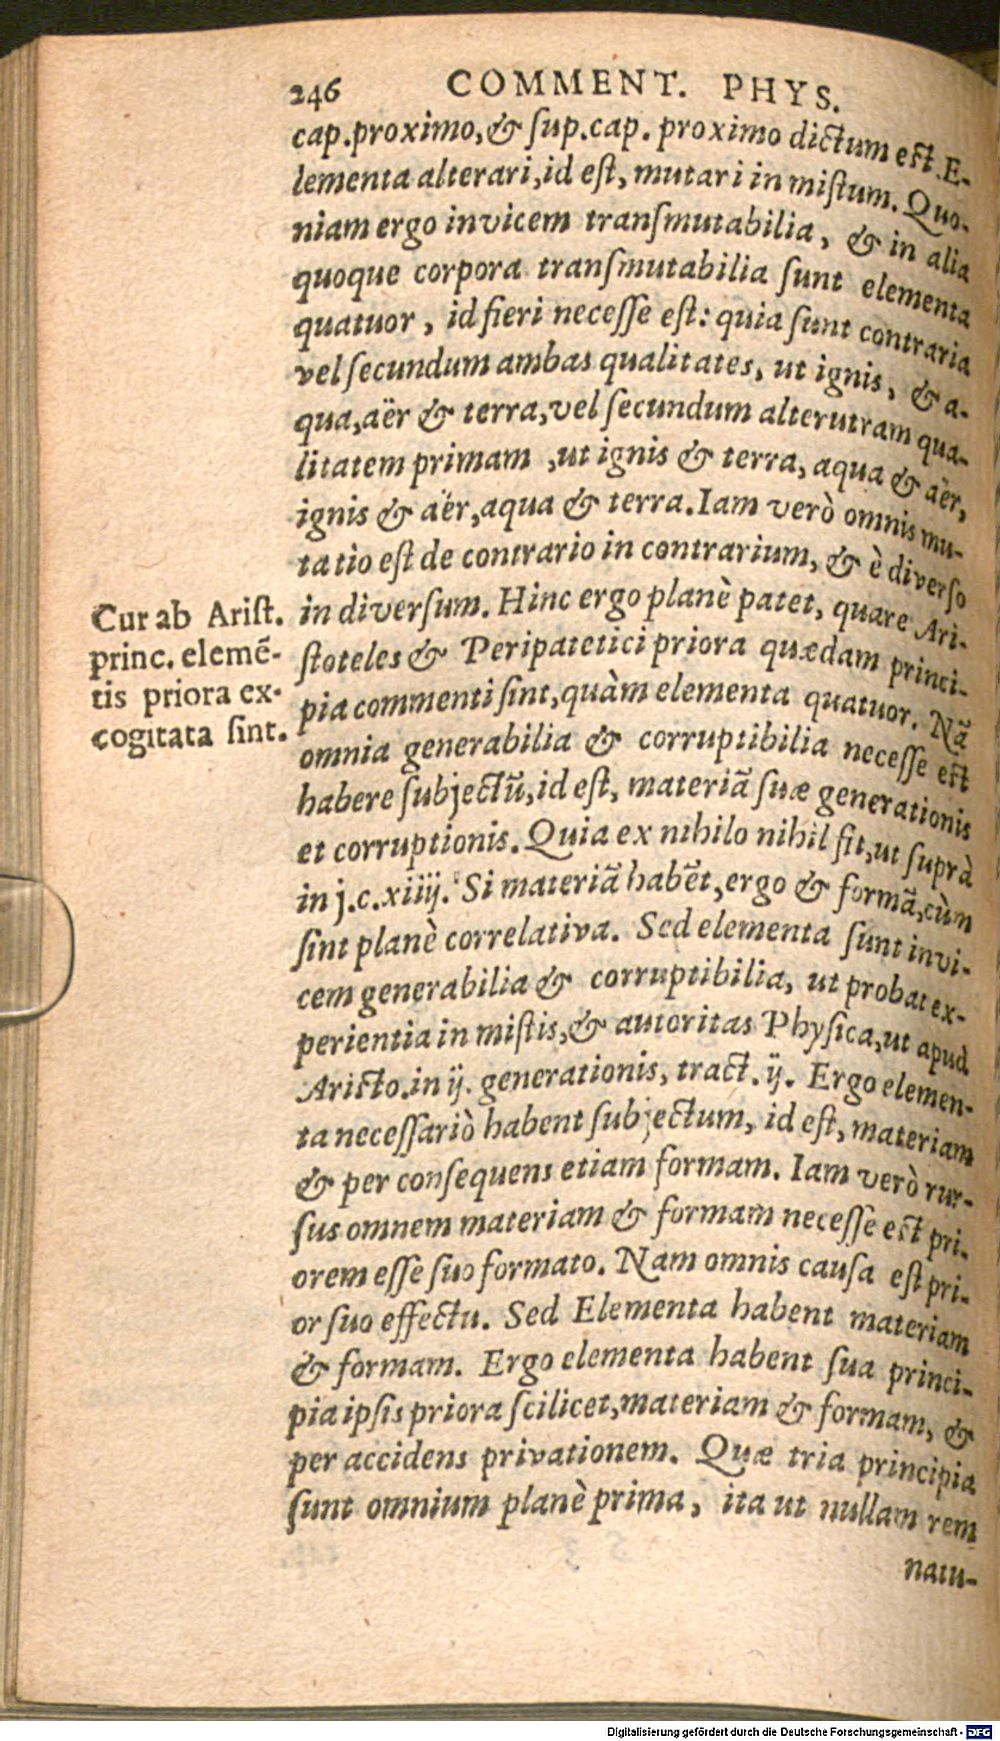 246 COMMENT. PHYS.
cap. proximo, & sup. cap. proximo dictum est. E-
lementa alterari, id est, mutari in mistum. Quo-
niam ergo invicem transmutabilia, & in alia
quoque corpora transmutabilia sunt elementa
quatuor, id fieri necesse est: quia sunt contraria
vel secundum ambas qualitates, ut ignis, & a-
qua, aër & terra, vel secundum alterutram qua-
litatem primam, ut ignis & terra, aqua & aër,
ignis & aër, aqua & terra. Iam verò omnis mu-
tatio est de contrario in contrarium, & è diverso
in diversum. Hinc ergo planè patet, quare Ari-
stoteles & Peripatetici priora quædam princi-
pia commenti sint, quàm elementa quatuor. Nã
omnia generabilia & corruptibilia necesse est
habere subjectũ, id est, materiã suæ generationis
et corruptionis. Quia ex nihilo nihil fit, ut suprà
in j. c. xiiij. Si materiã habẽt, ergo & formã, cùm
sint planè correlativa. Sed elementa sunt invi-
cem generabilia & corruptibilia, ut probat ex-
perientia in mistis, & autoritas Physica, ut apud
Aristo. in ij. generationis, tract. ij. Ergo elemen-
ta necessariò habent subjectum, id est, materiam
& per consequens etiam formam. Iam verò rur-
sus omnem materiam & formam necesse est pri-
orem esse suo formato. Nam omnis causa est pri-
or suo effectu. Sed Elementa habent materiam
& formam. Ergo elementa habent sua princi-
pia ipsis priora scilicet, materiam & formam, &
per accidens privationem. Quæ tria principia
sunt omnium planè prima, ita ut nullam rem
natu-
Cur ab Arist.
princ. elemẽ-
tis priora ex-
cogitata sint.
Digitalisierung gefördert durch die Deutsche Forschungsgemeinschaft - DFG